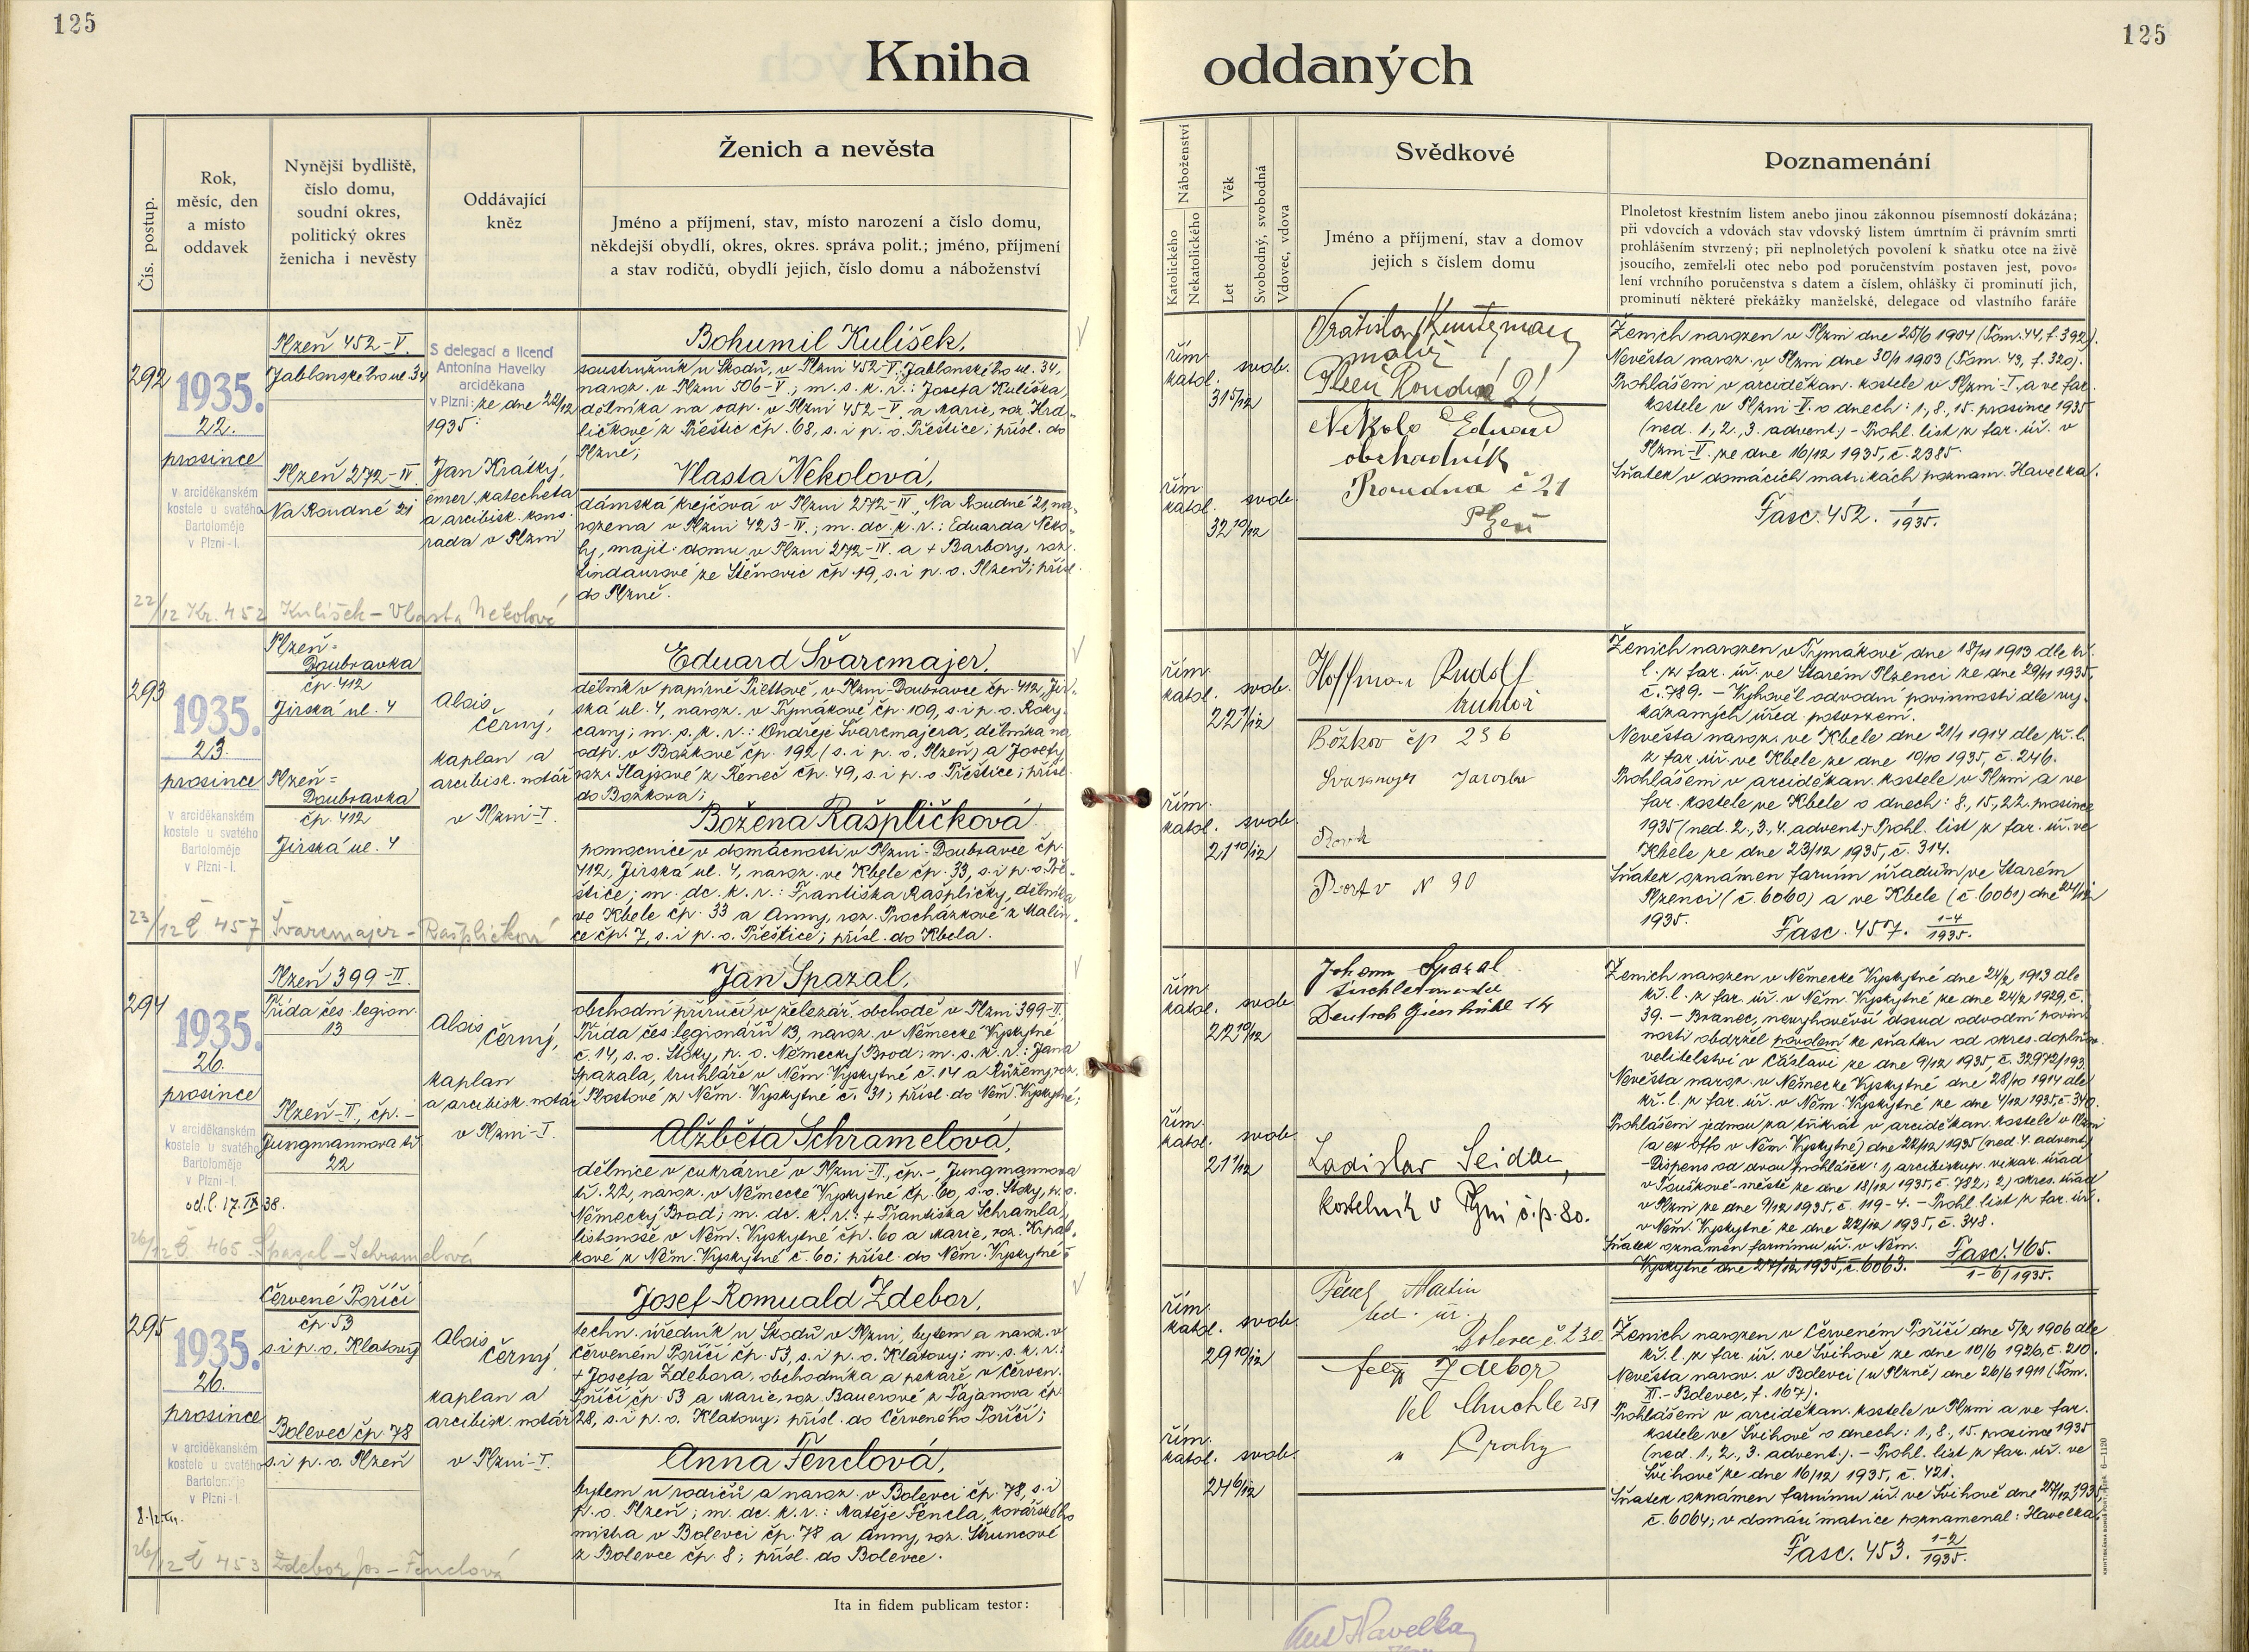 125
125
Kniha
oddaných
Čís. postup.
Rok,
měsíc, den
a místo
oddavek
Nynější bydliště,
číslo domu,
soudní okres,
politický okres
ženicha i nevěsty
Oddávající
kněz
Ženich a nevěsta
Jméno a příjmení, stav, místo narození a číslo domu,
někdejší obydlí, okres, okres. správa polit.; jméno, příjmení
a stav rodičů, obydlí jejich, číslo domu a náboženství
Náboženství
Katolického
Nekatolického
Věk
Let
Svobodný, svobodná
Vdovec, vdova
Svědkové
Jméno a příjmení, stav a domov
jejich s číslem domu
Poznamenání
Plnoletost křestním listem anebo jinou zákonnou písemností dokázána;
při vdovcích a vdovách stav vdovský listem úmrtním či právním smrti
prohlášením stvrzený; při neplnoletých povolení k sňatku otce na živě
jsoucího, zemřel-li otec nebo pod poručenstvím postaven jest, povo-
lení vrchního poručenstva s datem a číslem, ohlášky či prominutí jich,
prominutí některé překážky manželské, delegace od vlastního faráře
292
1935.
22.
prosince
v arciděkanském
kostele u svatého
Bartoloměje
v Plzni-I.
Plzeň 452-V.
Jablonského ul. 34
Plzeň 272-IV.
Na Roudné 21
S delegací a licencí
Antonína Havelky
arciděkana
v Plzni: ze dne 22/12
1935:
Jan Krátký,
emer. katecheta
a arcibisk. kons.
rada v Plzni
Bohumil Kulíšek,
soustružník u Škodů, v Plzni 452-V. Jablonského ul. 34,
naroz. v Plzni 506-V; m. s. k. r.: Josefa Kulíška,
dělníka na odp. v Plzni 452-V. a Marie, roz. Hrd-
ličkové z Přeštic čp. 68, s. i p. o. Přeštice; přísl. do
Plzně;
Vlasta Nekolová,
dámská krejčová v Plzni 272-IV., Na Roudné 21, na-
rozena v Plzni 423-IV.; m. dc. k. r.: Eduarda Neko-
ly, majit. domu v Plzni 272-IV. a + Barbory, roz.
Lindaurové ze Štěnovic čp. 19, s. i p. o. Plzeň; přísl.
do Plzně.
22/12 Kr. 452 Kulíšek – Vlasta Nekolová
řím.
katol.
svob.
31 5/12
řím.
katol.
svob.
32 10/12
malíř
Plzeň Roudná 21
Nekola Eduard
obchodník
Roudná č 21
Plzeň
Ženich narozen v Plzni dne 25/6 1904 (Tom. 44, f. 392).
Nevěsta naroz. v Plzni dne 30/1 1903 (Tom. 43, f. 320).
Prohlášení v arciděkan. kostele v Plzni-I. a ve far.
kostele v Plzni-V. o dnech: 1., 8., 15. prosince 1935
(ned. 1., 2., 3. advent.) – Prohl. list z far. úř. v
Plzni-V. ze dne 16/12 1935, č. 2385.
Sňatek v domácích matrikách poznam. Havelka.
Fasc. 452. 1/1935.
293
1935.
23.
prosince
v arciděkanském
kostele u svatého
Bartoloměje
v Plzni-I.
Plzeň-
Doubravka
čp. 412
Jirská ul. 4
Plzeň-
Doubravka
čp. 412
Jirská ul. 4
Alois
Černý,
kaplan a
arcibisk. notář
v Plzni-I.
Eduard Švarcmajer,
dělník v papírně Piettově, v Plzni-Doubravce čp. 412, Jir-
ská ul. 4, naroz. v Tymákově čp. 109, s. i p. o. Roky-
cany; m. s. k. r.: Ondřeje Švarcmajera, dělníka na
odp. v Božkově čp. 192 (s. i p. o. Plzeň) a Josefy
roz. Hajšové z Řeneč čp. 49, s. i p. o. Přeštice; přísl.
do Božkova;
Božena Rašpličková
pomocnice v domácnosti v Plzni-Doubravce čp.
412, Jirská ul. 4, naroz. ve Kbele čp. 33, s. i p. o. Pře-
štice; m. dc. k. r.: Františka Rašpličky, dělníka
ve Kbele čp. 33 a Anny, roz. Procházkové z Malin-
ce čp. 7, s. i p. o. Přeštice; přísl. do Kbela.
23/12 Č 457 Švarcmajer – Rašpličková
řím.
katol.
svob.
22 1/12
řím.
katol.
svob.
21 10/12
Hoffman Rudolf
truhlář
Božkov čp 236
Jaroslav
N 90
Ženich narozen v Tymákově dne 18/11 1913 dle kř.
l. z far. úř. ve Starém Plzenci ze dne 29/11 1935,
č. 789. – Vyhověl odvodní povinnosti dle vy-
kázaných úřed. potvrzení.
Nevěsta naroz. ve Kbele dne 21/1 1914 dle kř. l.
z far. úř. ve Kbele ze dne 19/10 1935, č. 246.
Prohlášení v arciděkan. kostele v Plzni a ve
far. kostele ve Kbele o dnech: 8., 15., 22. prosince
1935 (ned. 2., 3., 4. advent.) Prohl. list z far. úř. ve
Kbele ze dne 23/12 1935, č. 314.
Sňatek oznámen farním úřadům ve Starém
Plzenci (č. 6060) a ve Kbele (č. 6061) dne 24/12
1935.
Fasc. 457. 1-4/1935.
294
1935.
26.
prosince
v arciděkanském
kostele u svatého
Bartoloměje
v Plzni-I.
od. l. 17. IX 38.
Plzeň 399-II.
Třída čes. legion.
13
Plzeň-II., čp. –
Jungmannova tř.
22
Alois
Černý,
kaplan
a arcibisk. notář
v Plzni-I.
Jan Spazal,
obchodní příručí v železář. obchodě v Plzni 399-II.
Třída čes. legionářů 13, naroz. v Německé Vyskytné
č. 14, s. o. Štoky, p. o. Německý Brod; m. s. k. r.: Jana
Spazala, truhláře v Něm. Vyskytné č. 14 a Růženy, roz.
Plostové z Něm. Vyskytné č. 31; přísl. do Něm. Vyskytné;
Alžběta Schramelová,
dělnice v cukrárně v Plzni-II., čp. –, Jungmannova
tř. 22, naroz. v Německé Vyskytné čp. 60, s. o. Štoky, p. o.
Německý Brod; m. dc. k. r.: + Františka Schramla,
listonoše v Něm. Vyskytné čp. 60 a Marie, roz. Krpál-
kové z Něm. Vyskytné č. 60; přísl. do Něm. Vyskytné.
26/12 Č 465 Spazal – Schramelová
řím.
katol.
svob.
22 10/12
řím.
katol.
svob.
21 1/12
Johann Spazal
Deutsch Giesshübl 14
Ladislav Seidan,
kostelník v Plzni č.p. 80.
Ženich narozen v Německé Vyskytné dne 24/2 1913 dle
kř. l. z far. úř. v Něm. Vyskytné ze dne 24/2 1929, č.
39. – Branec, nevyhověvší dosud odvodní povin-
nosti obdržel povolení ke sňatku od okres. doplňov.
velitelství v Čáslavi ze dne 9/12 1935 č. 32972/193
Nevěsta naroz. v Německé Vyskytné dne 28/10 1914 dle
kř. l. z far. úř. v Něm. Vyskytné ze dne 4/12 1935, č. 340.
Prohlášení jednou za třikrát v arciděkan. kostele v Plzni
(a ex offo v Něm. Vyskytné) dne 22/12 1935 (ned. 4. advent.)
– Dispens od dvou prohlášek: 1, arcibiskup. vikar. úřad
v Touškově-městě ze dne 18/12 1935, č. 782; 2) okres. úřad
v Plzni ze dne 9/12 1935, č. 119-4. – Prohl. list z far. úř.
v Něm. Vyskytné ze dne 22/12 1935, č. 348.
Sňatek oznámen farnímu úř. v Něm.
Vyskytné dne 27/12 1935, č. 6063.
Fasc. 465.
1-6/1935.
295
1935.
26.
prosince
v arciděkanském
kostele u svatého
Bartoloměje
v Plzni-I.
Červené Poříčí
čp. 53
s. i p. o. Klatovy
Bolevec čp. 78
s. i p. o. Plzeň
Alois
Černý
kaplan a
arcibisk. notář
v Plzni-I.
Josef Romuald Zdebor,
techn. úředník u Škodů v Plzni, bytem a naroz. v
Červeném Poříčí čp. 53, s. i p. o. Klatovy; m. s. k. r.:
+ Josefa Zdebora, obchodníka a pekaře v Červen.
Poříčí čp. 53 a Marie, roz. Bauerové z Tajanova čp.
28, s. i p. o. Klatovy; přísl. do Červeného Poříčí;
Anna Fenclová,
bytem u rodičů a naroz. v Bolevci čp. 78, s. i
p. o. Plzeň; m. dc. k. r.: Matěje Fencla, kovářského
mistra v Bolevci čp. 78 a Anny, roz. Štruncové
z Bolevce čp. 8; přísl. do Bolevce.
26/12 Č 453 Zdebor Jos – Fenclová
řím.
katol.
svob.
29 10/12
řím.
katol.
svob.
24 6/12
Fencl Martin
úř.
Bolevec č. 230
Zdebor
Vel Chuchle 251
u Prahy
Ženich narozen v Červeném Poříčí dne 5/2 1906 dle
kř. l. z far. úř. ve Švihově ze dne 10/6 1926, č. 210.
Nevěsta naroz. v Bolevci (u Plzně) dne 26/6 1911 (Tom.
II. – Bolevec, f. 167).
Prohlášení v arciděkan. kostele v Plzni a ve far.
kostele ve Švihově o dnech: 1., 8., 15. prosince 1935
(ned. 1., 2., 3. advent.). – Prohl. list z far. úř. ve
Švihově ze dne 16/12 1935, č. 421.
Sňatek oznámen farnímu úř. ve Švihově dne 27/12 1935,
č. 6064; v domácí matrice poznamenal: Havelka.
Fasc. 453. 1-2/1935.
Ita in fidem publicam testor:
Ant Havelka